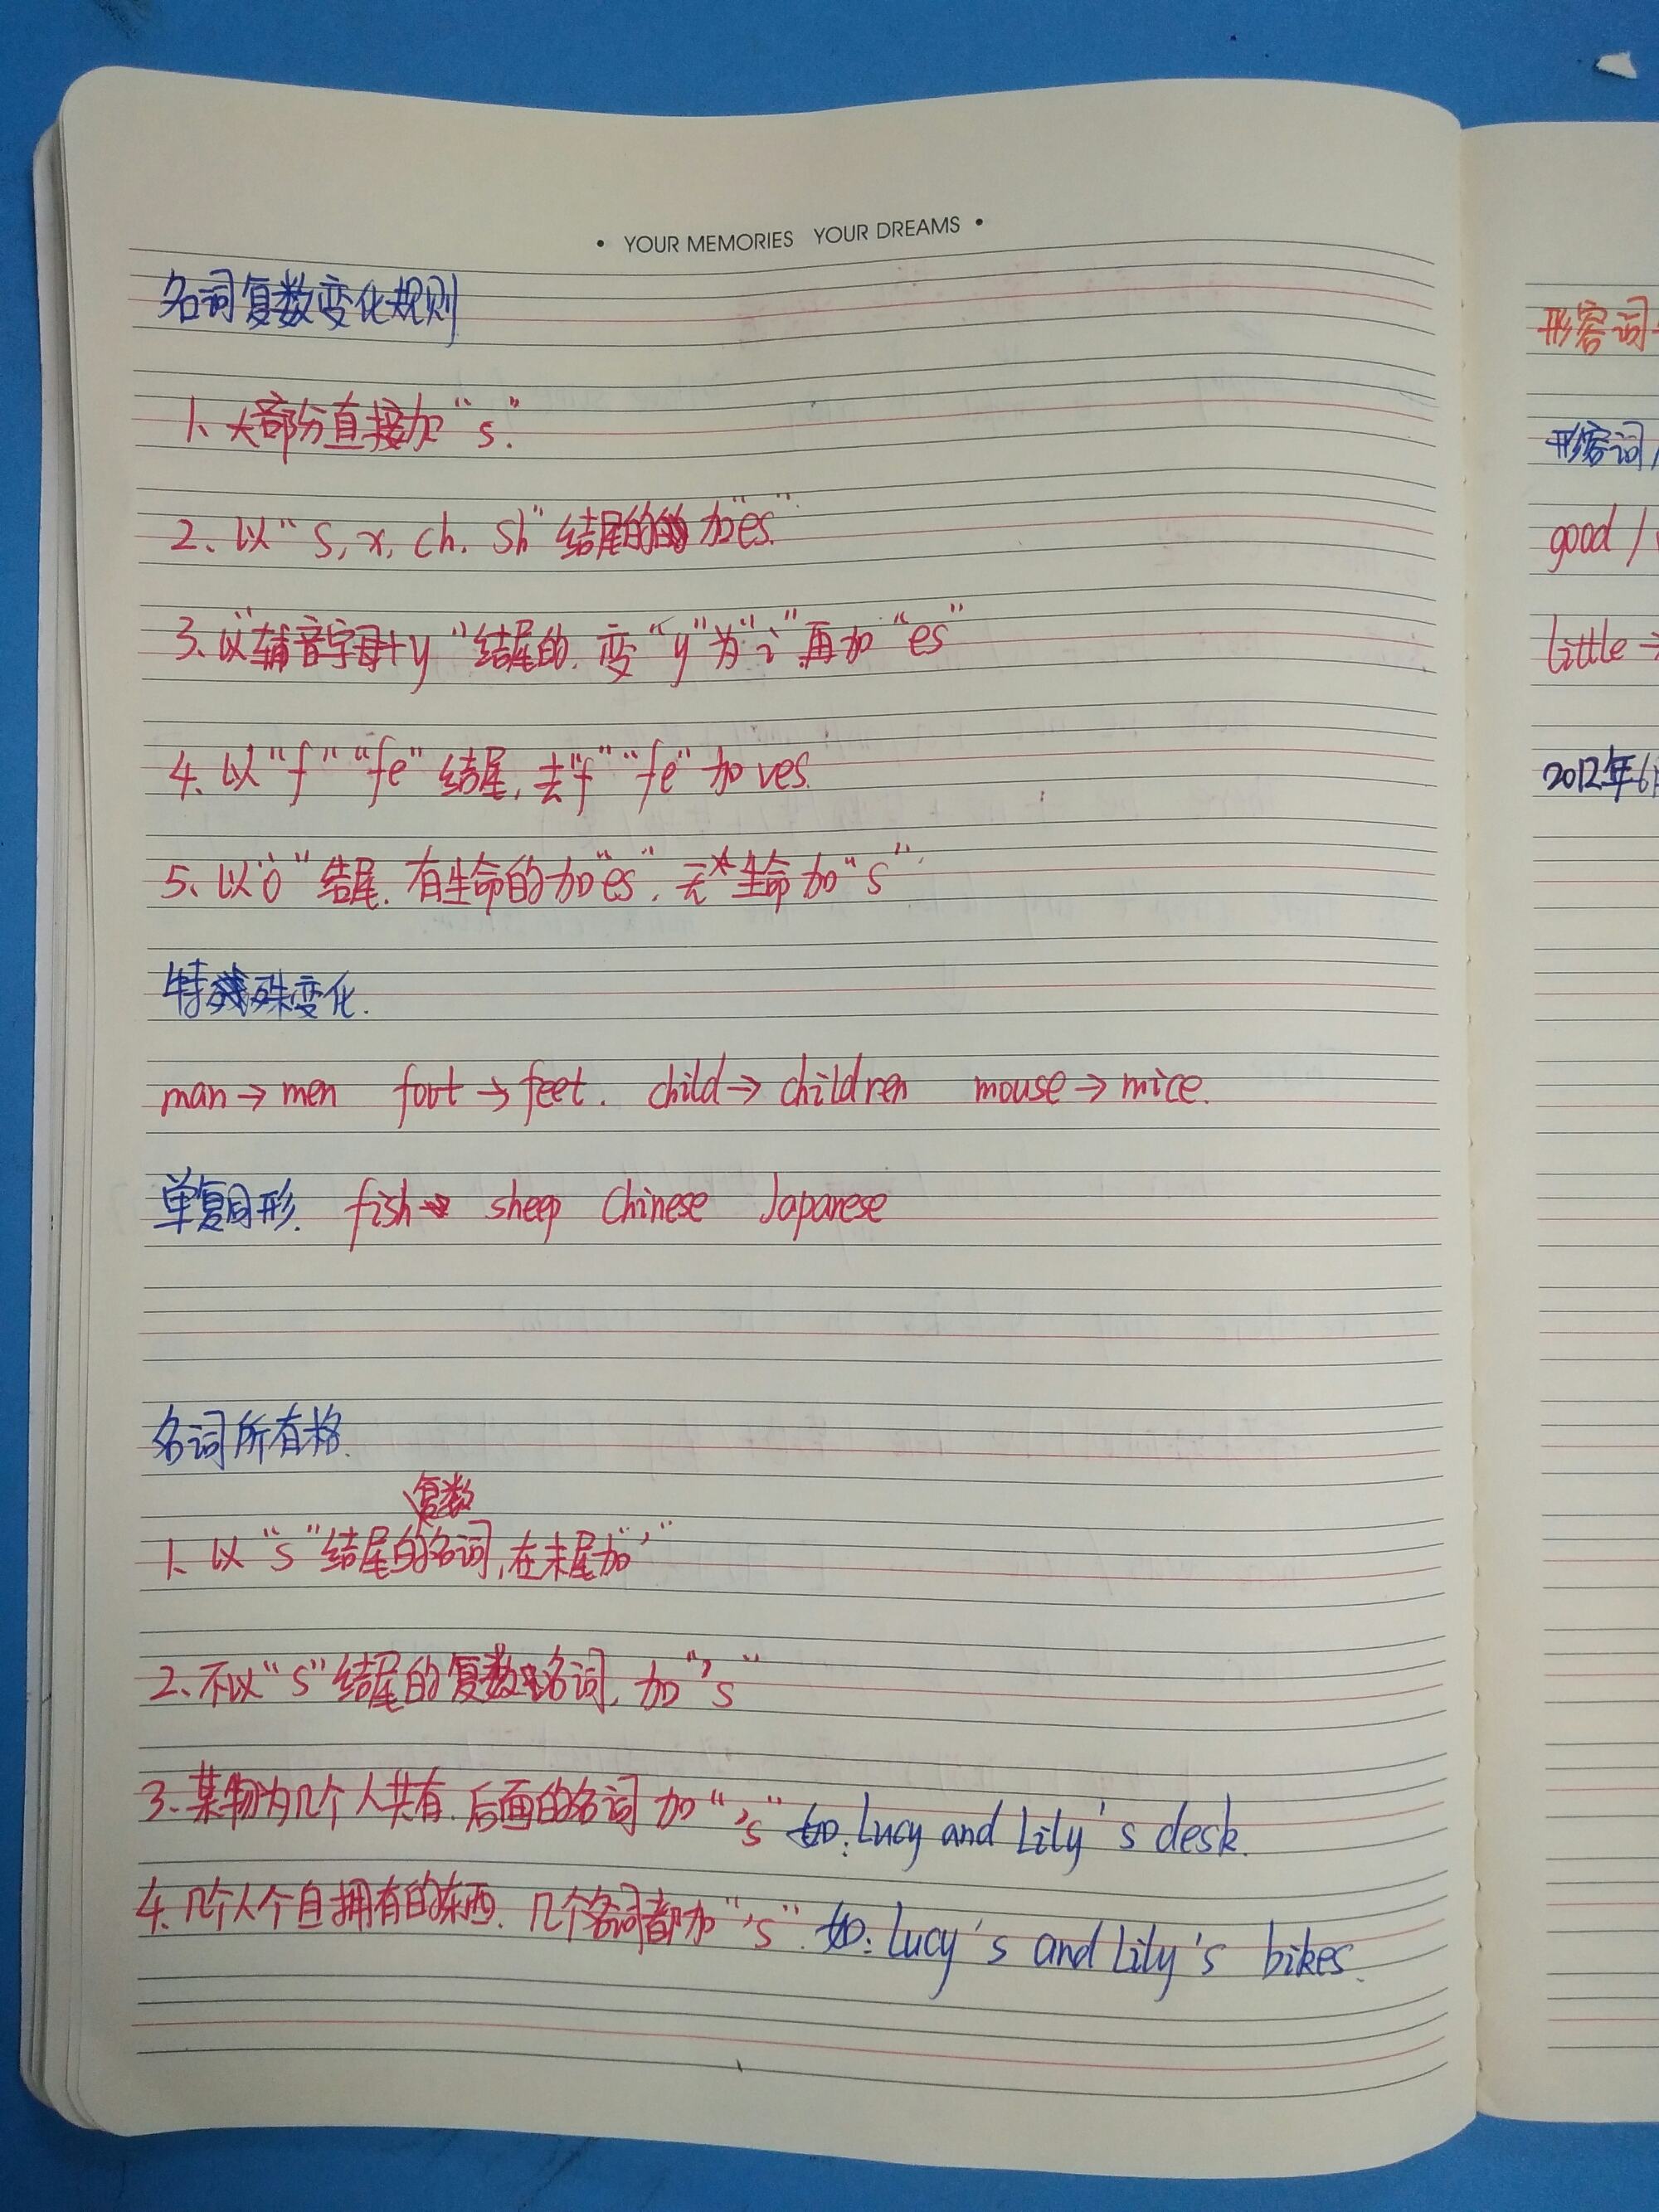 • YOUR MEMORIES YOUR DREAMS •
名词复数变化规则
1、大部份直接加“s.”
2、以“s, x, ch. sh”结尾的加“es.”
3、以“辅音字母+y”结尾的. 变“y”为“i”再加“es”
4. 以“f”“fe”结尾, 去“f”“fe”加ves.
5、以“o”结尾. 有生命的加“es”. 无生命加“s”.
特殊变化.
man→men foot→feet. child→children mouse→mice.
单复同形. fish sheep Chinese Japanese
名词所有格.
复数
1. 以“s”结尾的名词,在末尾加“’”
2、不以“s”结尾的复数名词, 加“’s”
3、某物为几个人共有. 后面的名词加“’s” 如:Lucy and Lily's desk.
4. 几个人个自拥有的东西. 几个名词都加“’s”. 如: Lucy's and Lily's bikes.
形容词
形容词
good /
little →
2012年6